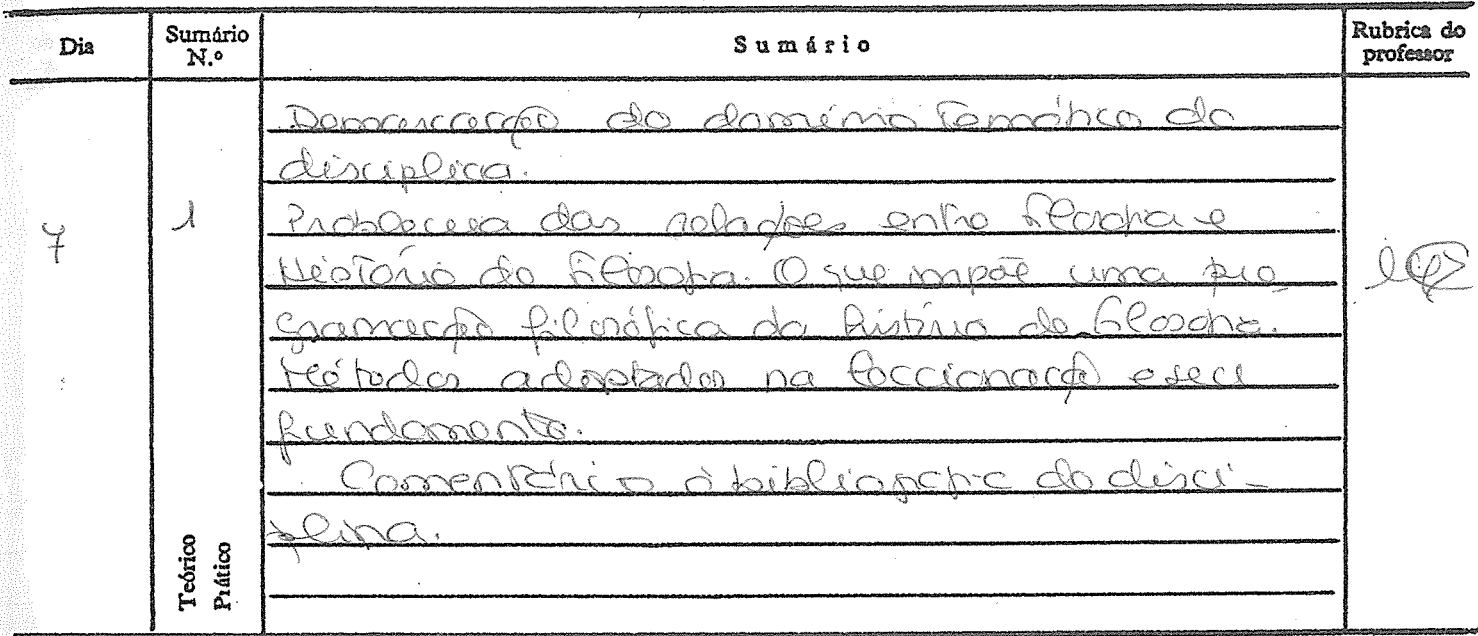 Dia
Sumário N.º
Sumário
Rubrica do professor
7
1
Demarcação do domínio temático da
disciplina.
Problema das relações entre filosofia e
História da filosofia. O que impõe uma pro-
gramação filosófica da história da filosofia.
Métodos adoptados na leccionação e seu
fundamento.
Comentário à bibliografia da disci-
plina.
Teórico
Prático